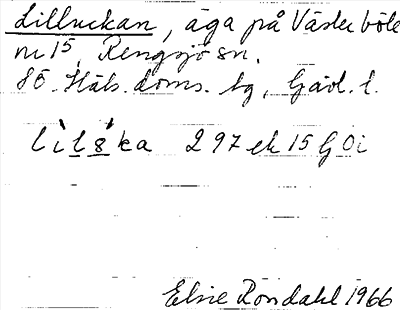 Lilluckan, äga på Västerböle
nr 15, Rengsjö sn.
SÖ. Häls. doms. tg, Gävl. l.
lìlš́ka 297 ek 15 G 0i
Elsie Röndahl 1966